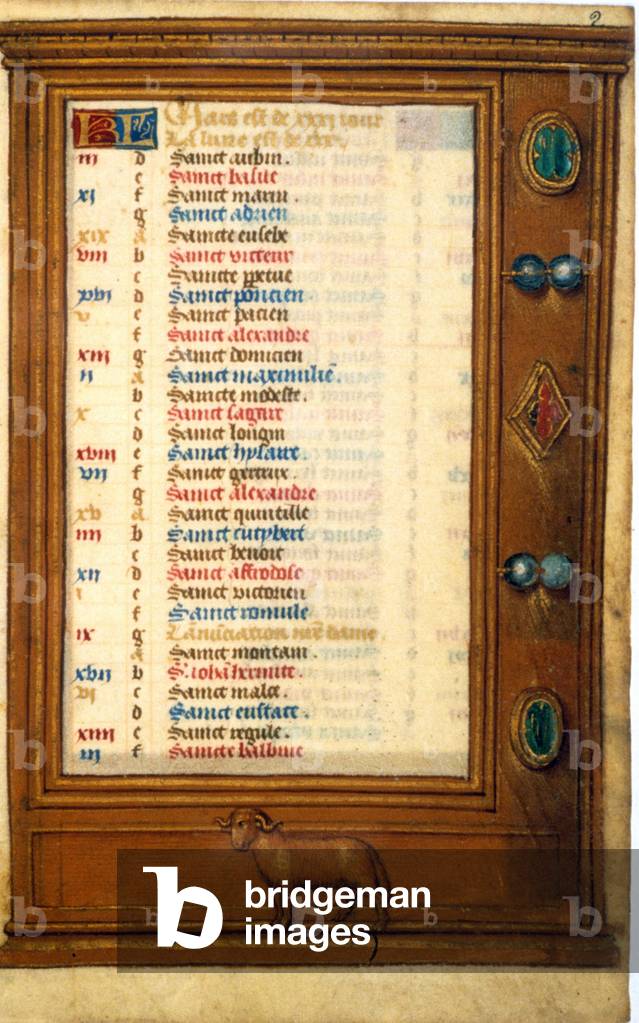 2
KL Mars est de xxxj iour
La lune est de xxx.
iij d Sainct aubin.
e Sainct basile
xj f Sainct marin
g Sainct adrien
xix a Saincte eusebe
viij b Sainct victeur
c Saincte ppetue
xvj d Sainct poncien
v e Sainct pacien
f Sainct alexandre
xiij g Sainct domicien
ij a Sainct maximilie.
b Saincte modeste.
x c Sainct
d Sainct longin
xviij e Sainct
vij f Sainct gertrux.
g Sainct alexandre
xv a Sainct quintille
iiij b Sainct cutpbert
c Sainct benoit
xij d Sainct affrodose
i e Sainct victorien
f Sainct romule
ix g Lanūciation nre dame.
a Sainct montain.
xvij b S. iohā hermite.
vj c Sainct malce.
d Sainct eustace.
xiiij e Sainct regule.
iij f Saincte balbine
b bridgeman
images